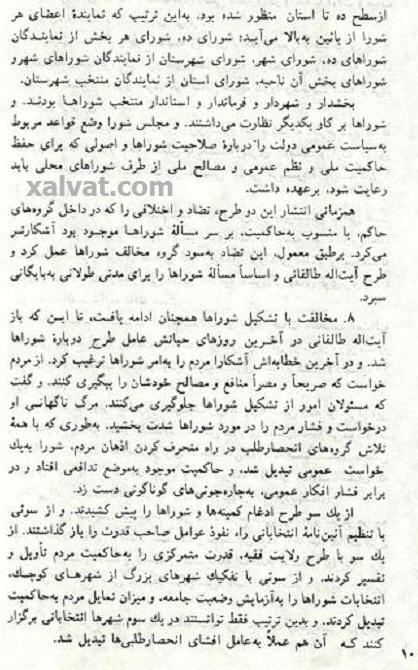 ازسطح ده تا استان منظور شده بود. به‌این ترتیب که نمایندهٔ اعضای هر
شورا از پائین به‌بالا می‌آید: شورای ده، شورای هر بخش از نمایندگان
شوراهای ده، شورای شهر، شورای شهرستان از نمایندگان شوراهای شهر و
شوراهای بخش آن ناحیه، شورای استان از نمایندگان منتخب شهرستان.
بخشدار و شهردار و فرماندار و استاندار منتخب شوراها بودند. و
شوراها بر کار یکدیگر نظارت می‌داشتند. و مجلس شورا وضع قواعد مربوط
به‌سیاست عمومی دولت را دربارهٔ صلاحیت شوراها و اصولی که برای حفظ
حاکمیت ملی و نظم عمومی و مصالح ملی از طرف شوراهای محلی باید
رعایت شود، برعهده داشت.
xalvat.com
همزمانی انتشار این دو طرح، تضاد و اختلافی را که در داخل گروه‌های
حاکم، یا منسوب به‌حاکمیت، بر سر مسألهٔ شوراها موجود بود آشکارتر
می‌کرد. برطبق معمول، این تضاد به‌سود گروه مخالف شوراها عمل کرد و
طرح آیت‌اله طالقانی و اساساً مسألهٔ شوراها را برای مدتی طولانی به‌بایگانی
سپرد.
۸. مخالفت با تشکیل شوراها همچنان ادامه یافت، تا این که باز
آیت‌اله طالقانی در آخرین روزهای حیاتش عامل طرح دوبارهٔ شوراها
شد. و در آخرین خطابه‌اش آشکارا مردم را به‌امر شوراها ترغیب کرد. از مردم
خواست که صریحاً و مصراً منافع و مصالح خودشان را پیگیری کنند. و گفت
که مسئولان امور از تشکیل شوراها جلوگیری می‌کنند. مرگ ناگهانی او
درخواست و فشار مردم را در مورد شوراها شدت بخشید. به‌طوری که با همهٔ
تلاش گروه‌های انحصارطلب در راه منحرف کردن اذهان مردم، شورا به‌یك
خواست عمومی تبدیل شد، و حاکمیت موجود به‌موضع تدافعی افتاد و در
برابر فشار افکار عمومی، به‌چاره‌جوئی‌های گوناگونی دست زد.
از یك سو طرح ادغام کمیته‌ها و شوراها را پیش کشیدند. و از سوئی
با تنظیم آئین‌نامهٔ انتخاباتی راه نفوذ عوامل صاحب قدرت را باز گذاشتند. از
یك سو با طرح ولایت فقیه، قدرت متمرکزی را به‌حاکمیت مردم تأویل و
تفسیر کردند، و از سوئی با تفکیك شهرهای بزرگ از شهرهای کوچك،
انتخابات شوراها را به‌آزمایش وضعیت جامعه، و میزان تمایل مردم به‌حاکمیت
تبدیل کردند، و بدین ترتیب فقط توانستند در یك سوم شهرها انتخاباتی برگزار
کنند که آن هم عملاً به‌عامل افشای انحصارطلبی‌ها تبدیل شد.
۱۰